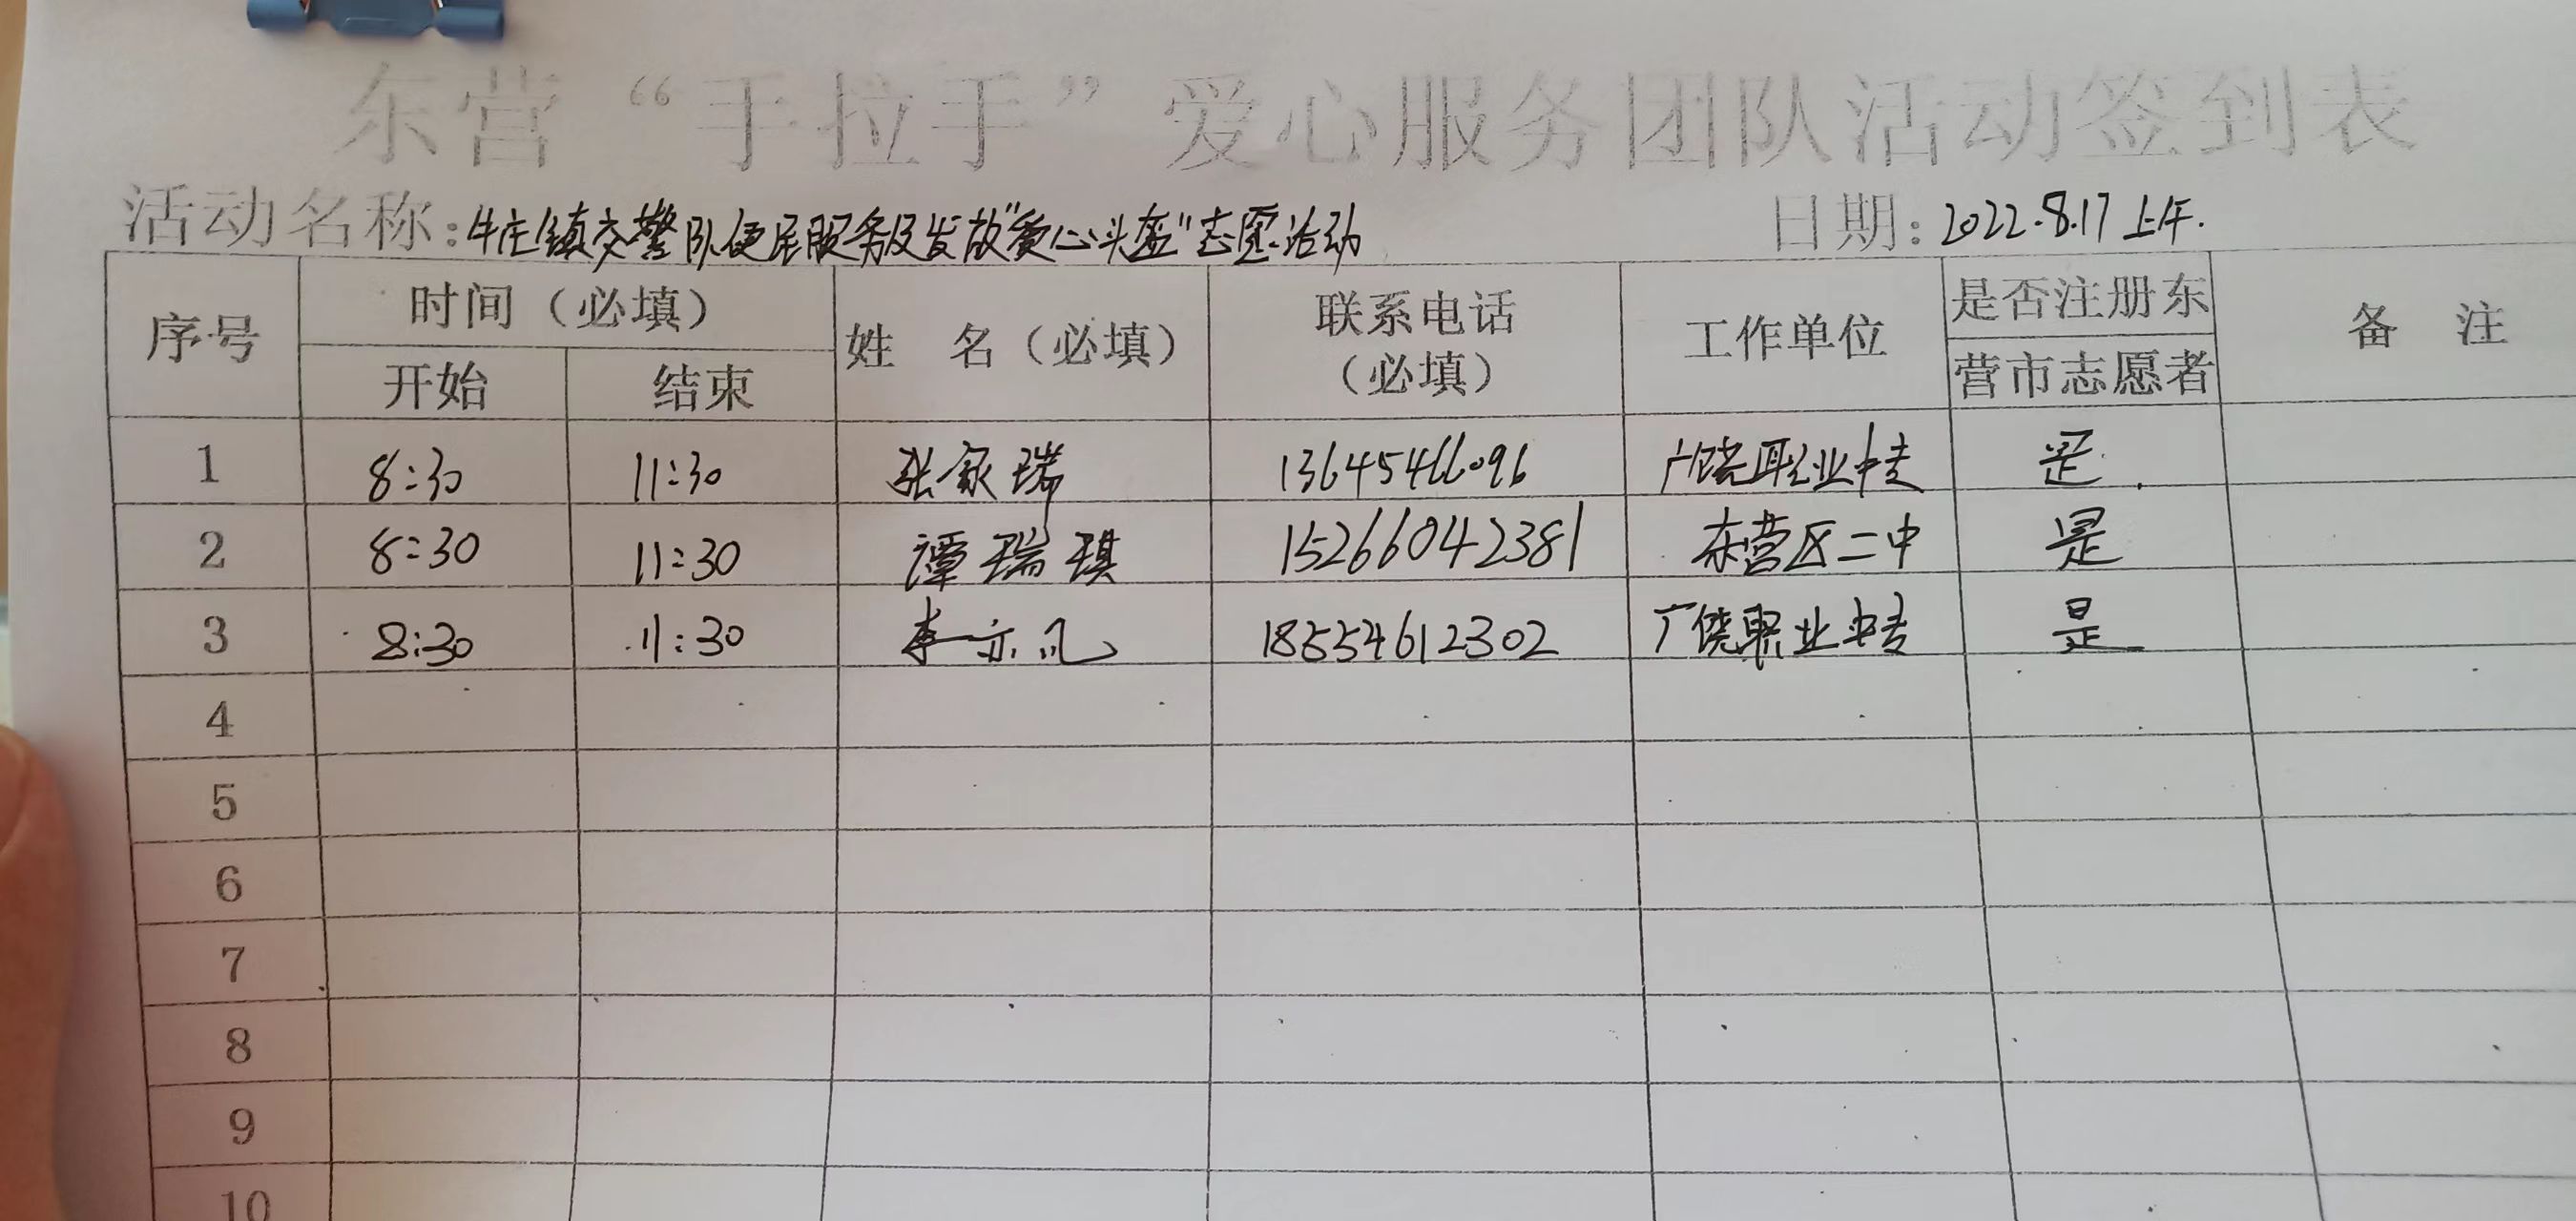 东营“手拉手”爱心服务团队活动签到表
活动名称:牛庄镇交警队便民服务及发放"爱心头盔"志愿活动 日期:2022.8.17 上午.
序号 时间（必填） 姓 名（必填） 联系电话（必填） 工作单位 是否注册东营市志愿者 备 注
开始 结束
1 8:30 11:30 张 瑞 13645466096 广饶职业中专 是
2 8:30 11:30 谭瑞琪 15266042381 东营区二中 是
3 8:30 11:30 李亦凡 18554612302 广饶职业中专 是
4
5
6
7
8
9
10